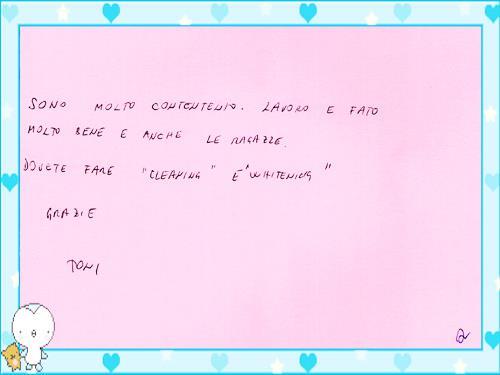 SONO MOLTO CONTENTENIO. LAVORO E FATO
MOLTO BENE E ANCHE LE RAGAZZE.
DOVETE FARE "CLEANING" E "WHITENING"
GRAZIE
TONI